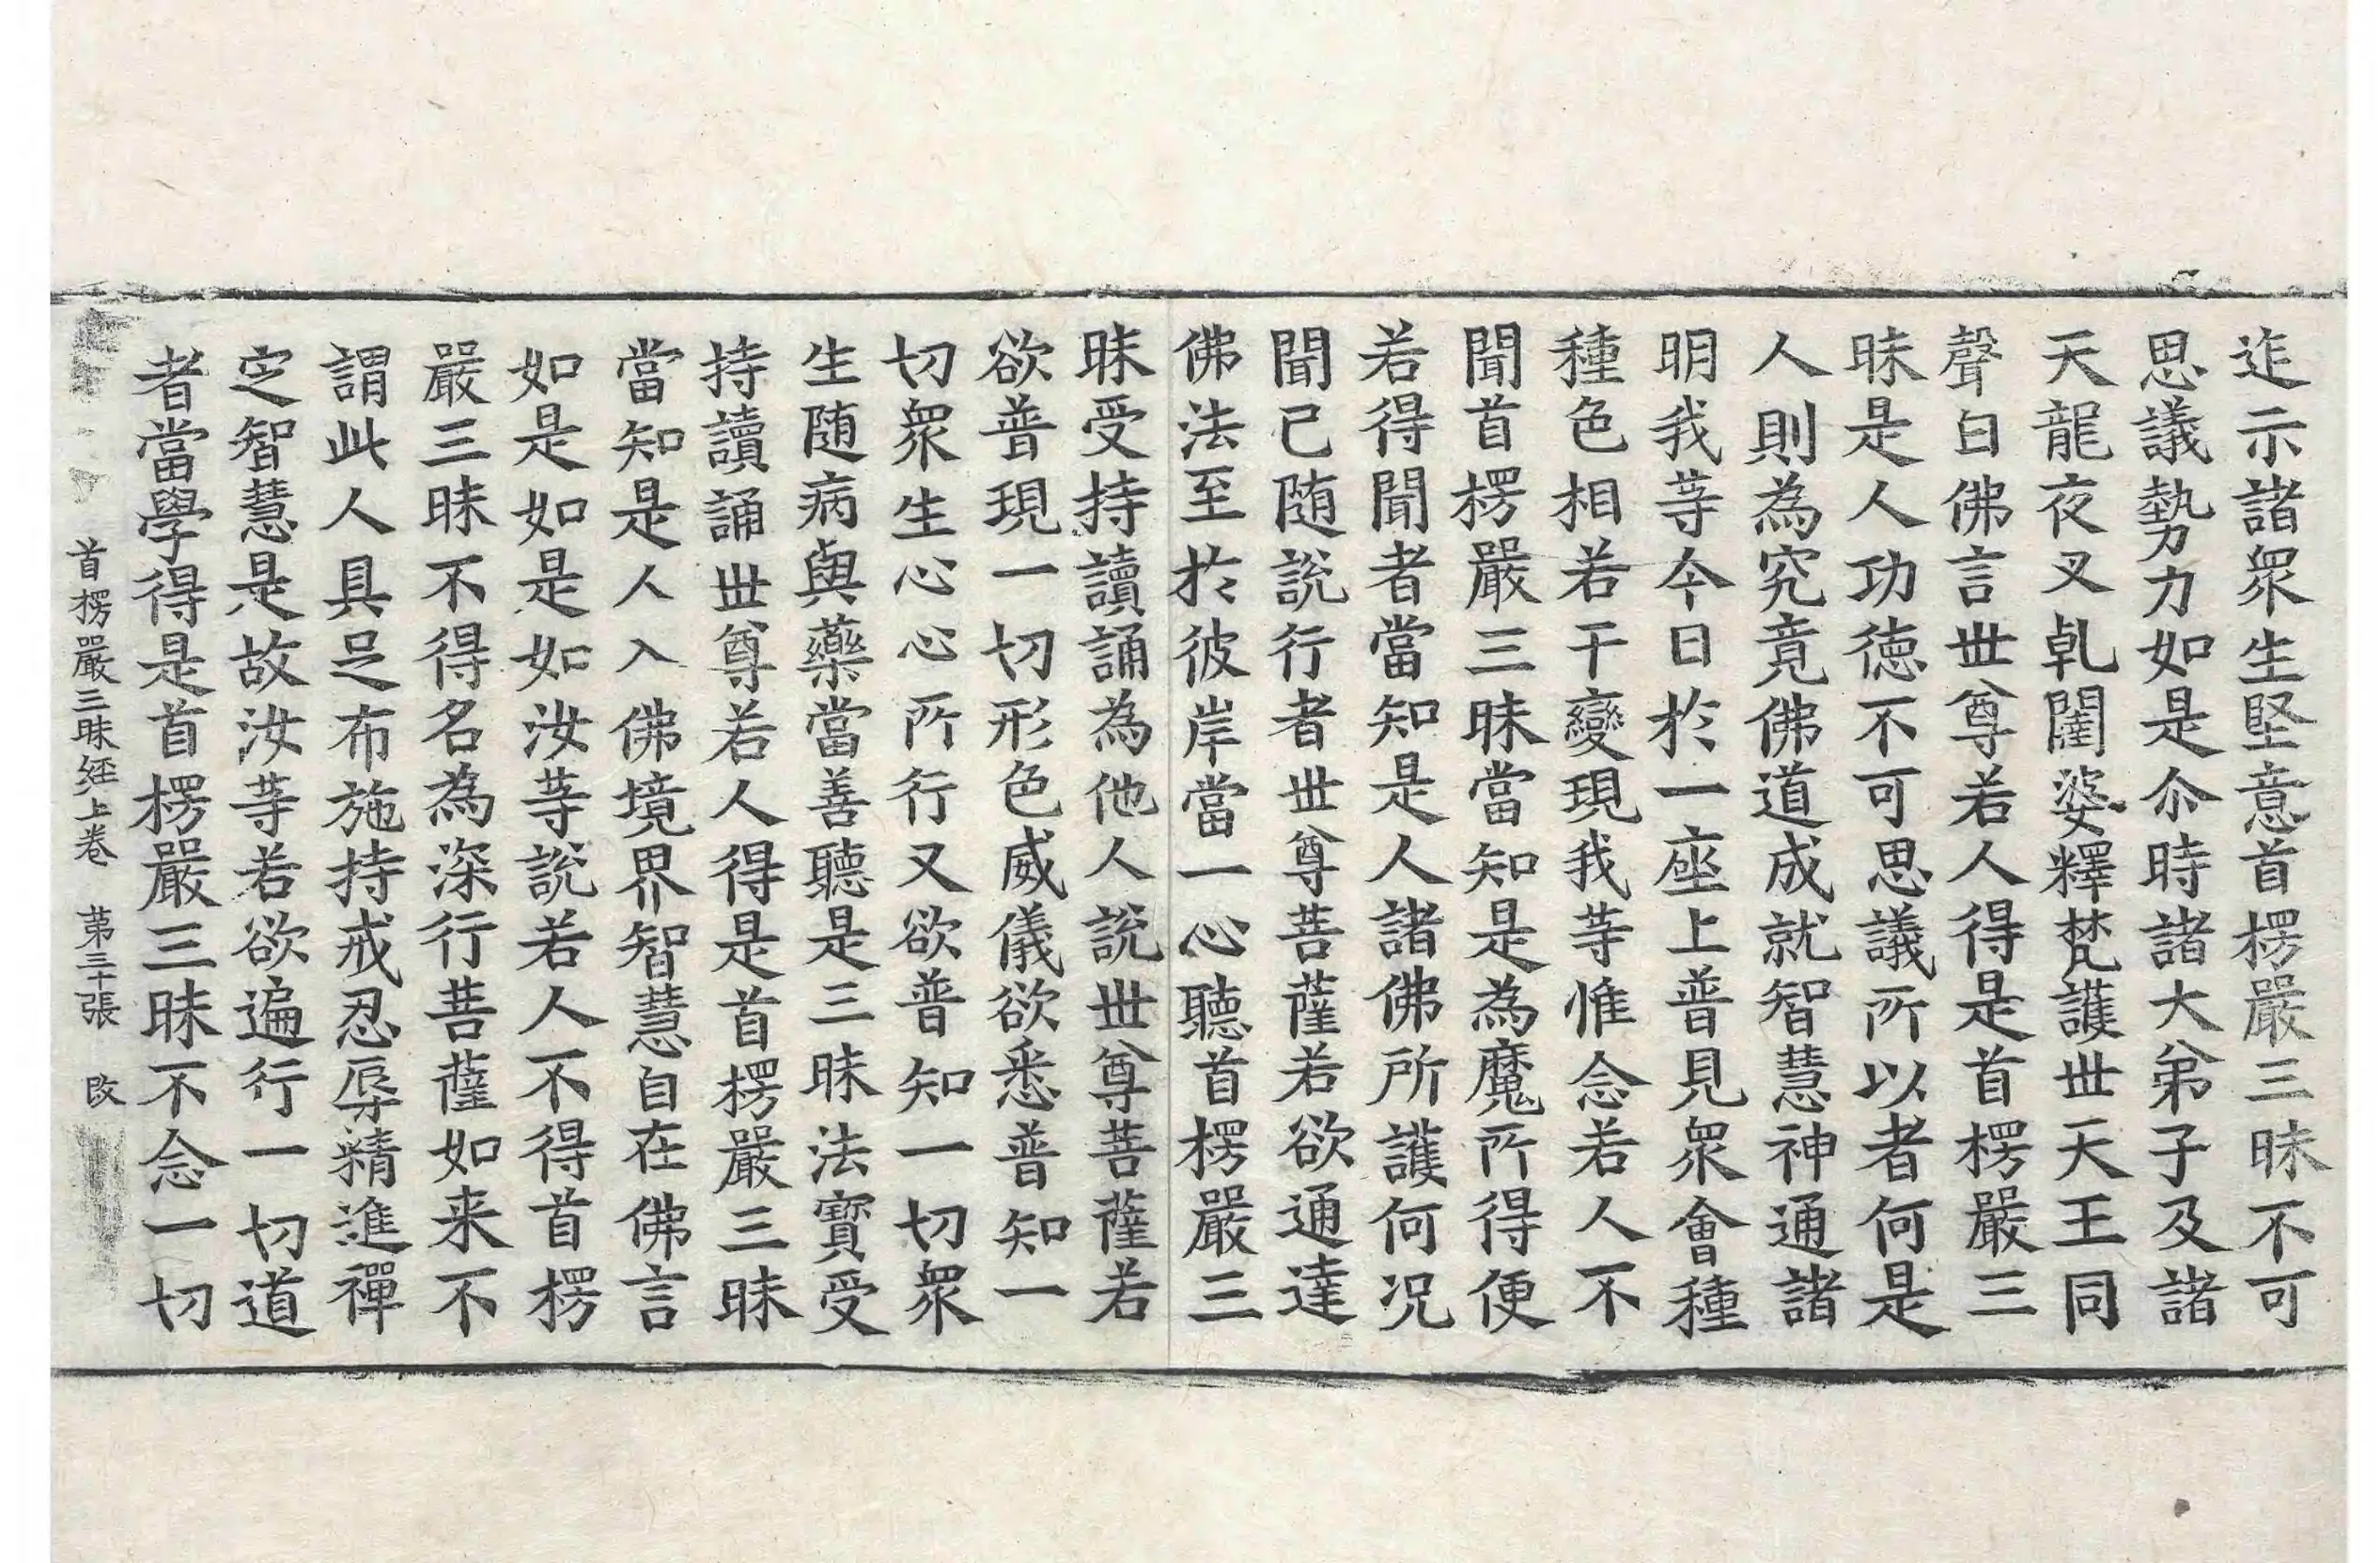 迮示諸衆生堅意首楞嚴三昧不可
思議勢力如是尒時諸大弟子及諸
天龍夜叉乹闥婆釋梵護世天王同
聲白佛言世尊若人得是首楞嚴三
昧是人功徳不可思議所以者何是
人則為究竟佛道成就智慧神通諸
明我等今日於一座上普見衆會種
種色相若干變現我等惟念若人不
聞首楞嚴三昧當知是為魔所得便
若得聞者當知是人諸佛所護何况
聞已随說行者世尊菩薩若欲通達
佛法至於彼岸當一心聽首楞嚴三
昧受持讀誦為他人說世尊菩薩若
欲普現一切形色威儀欲悉普知一
切衆生心心所行又欲普知一切衆
生随病與藥當善聽是三昧法寶受
持讀誦世尊若人得是首楞嚴三昧
當知是人入佛境界智慧自在佛言
如是如是如汝等說若人不得首楞
嚴三昧不得名為深行菩薩如来不
謂此人具足布施持戒忍辱精進禪
定智慧是故汝等若欲遍行一切道
者當學得是首楞嚴三昧不念一切
首楞嚴三昧經上卷 第三十張 改